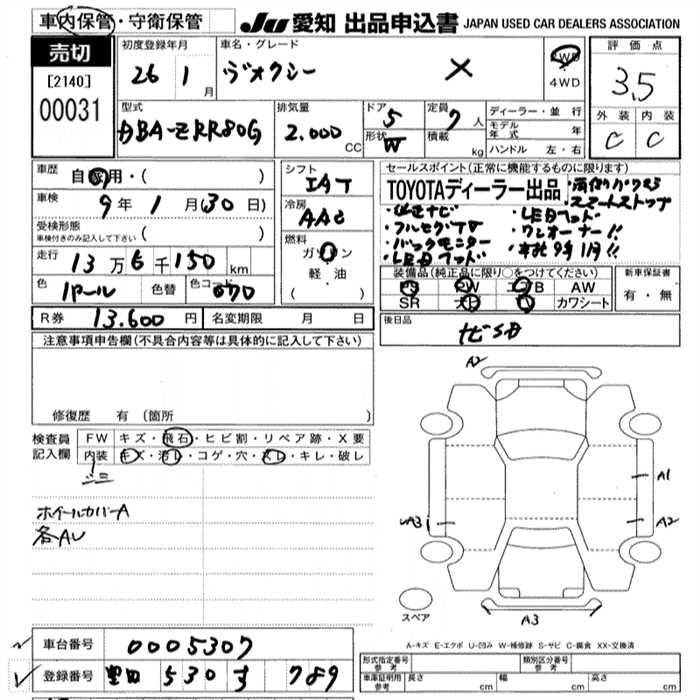 車内保管・守衛保管
JU 愛知 出品申込書 JAPAN USED CAR DEALERS ASSOCIATION
売切
[2140]
00031
初度登録年月
26 1 月
車名・グレード
ヴォクシー X
2WD
4WD
評価点
3.5
外装 内装
C C
型式
DBA-ZRR80G
排気量
2.000 CC
ドア 5
形状 W
定員 7 人
積載 kg
ディーラー・並行
モデル年式 年
ハンドル 左・右
車歴
自家用・( )
車検
9年 1月(30日)
受検形態
車検付きのみ記入して下さい ( )
走行
13万 6千150 km
色 パール 色替 色コード 070
シフト
IAT
冷房
AAC
燃料
ガソリン
軽・油
( )
セールスポイント(正常に機能するものに限ります)
TOYOTAディーラー出品
・両側パワスラ
・スマートストップ
・純正ナビ
・LEDヘッド
・フルセグTV
・ワンオーナー!!
・バックモニター
・車検9年1月!!
装備品(純正品に限り○をつけてください)
PS PW エアB AW
SR カワシート
新車保証書
有・無
R券 13.600 円 名変期限 月 日
後日品
ナビSD
注意事項申告欄(不具合内容等は具体的に記入して下さい)
修復歴 有(箇所 )
検査員記入欄
FW キズ・飛石・ヒビ割・リペア跡・X要
内装 キズ・汚レ・コゲ・穴・スレ・キレ・破レ
シミ
ホイールカバーA
各AU
A2
A1
A2
A3
A3
スペア
A-キズ E-エクボ U-凹み W-補修跡 S-サビ C-腐食 XX-交換済
車台番号 0005307
登録番号 豊田 530 す 789
形式指定番号 参考
類別区分番号 参考
車庫証明用 参考 長さ cm 幅 cm 高さ cm